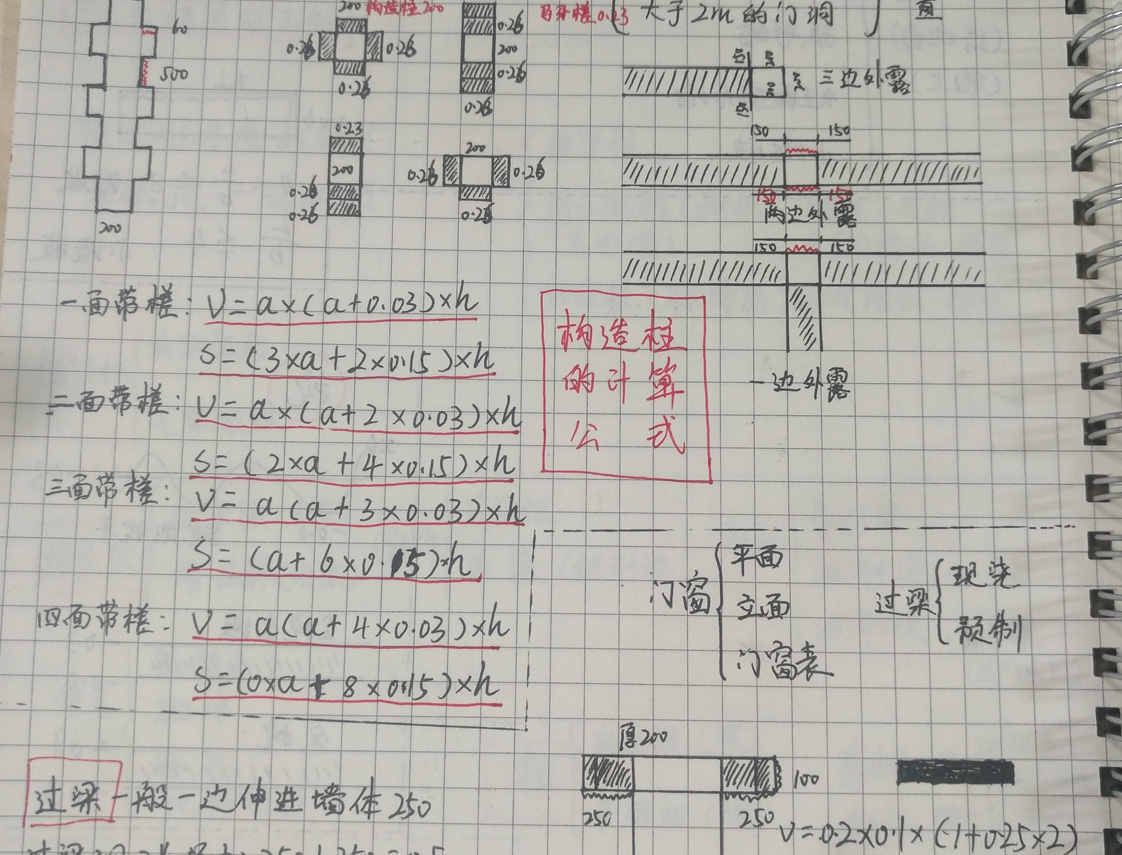 200 构造柱200
马牙槎0.23 大于2m的门洞
60
0.26 0.26
0.26
200
0.26
0.26
500
三边外露
0.23
200
0.26
0.26
200
0.26 0.26
0.26
150 150
150 150
两边外露
200
150 150
一面带槎: V=a×(a+0.03)×h
S=(3×a+2×0.15)×h
二面带槎: V=a×(a+2×0.03)×h
S=(2×a+4×0.15)×h
三面带槎: V=a(a+3×0.03)×h
S=(a+6×0.15)×h
四面带槎: V=a(a+4×0.03)×h
S=(0×a+8×0.15)×h
构造柱
的计算
公式
一边外露
门窗
平面
立面
门窗表
过梁
现浇
预制
过梁一般一边伸进墙体250
厚200
100
250 250
V=0.2×0.1×(1+0.25×2)